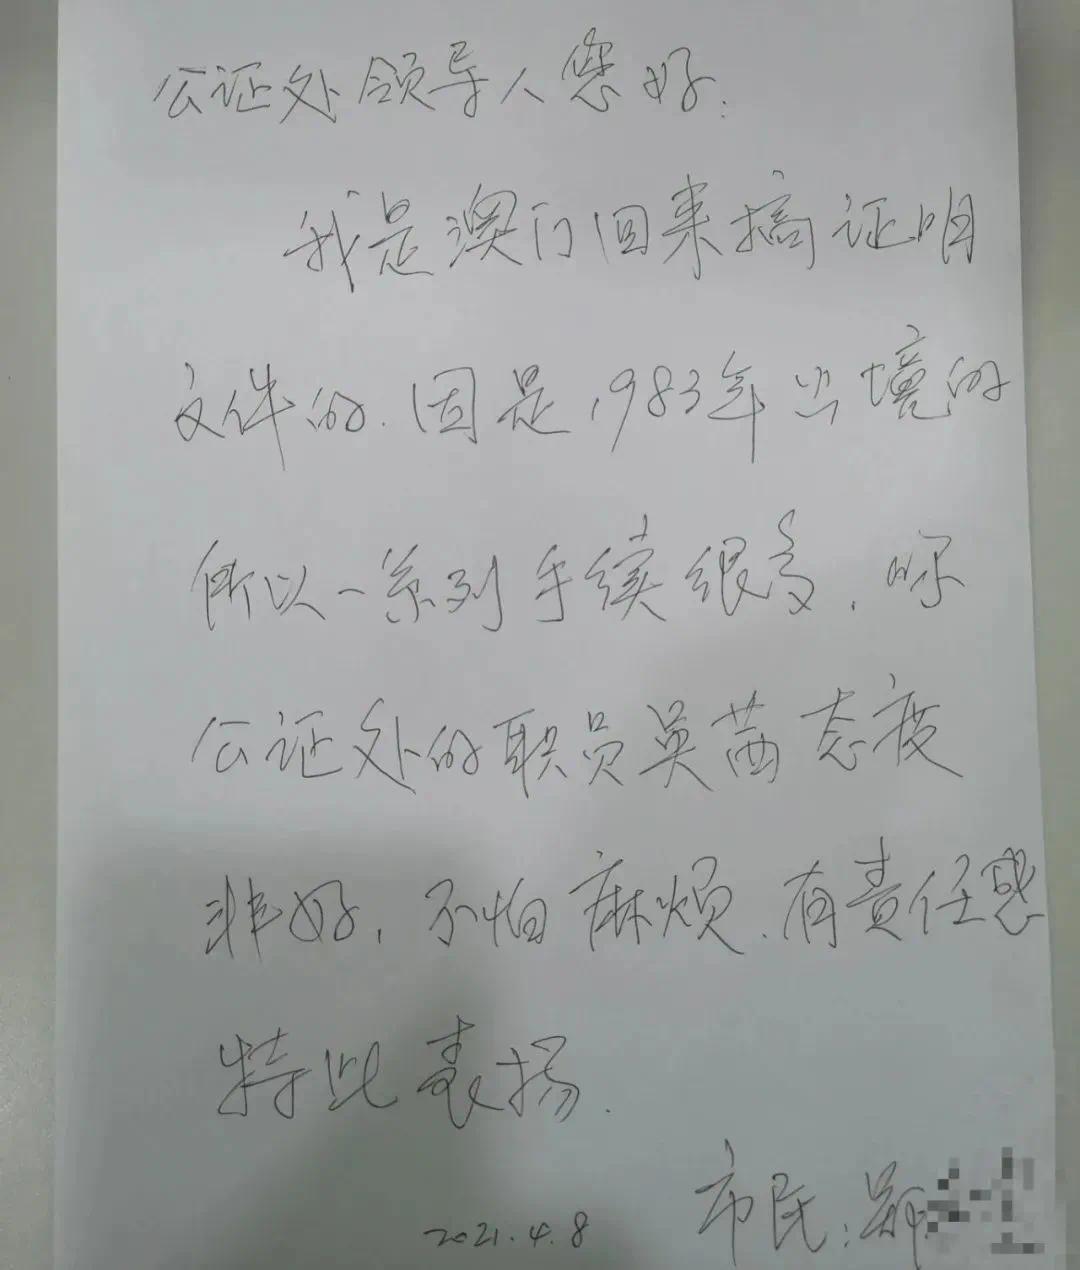 公证处领导人您好:
我是澳门回来搞证明
文件的.因是1983年出境的
所以一系列手续很多.呀
公证处的职员吴茜态度
非好,不怕麻烦.有责任感
特此表扬.
市民:郑
2021.4.8